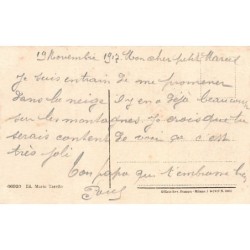 19 Novembre 1917 Mon cher petit Marcel
Je suis entrain de me promener
dans la neige il y en a déjà beaucoup
sur les montagnes. Je crois que tu
serais content de voir ça c'est
très joli
Ton papa qui t'embrasse bien